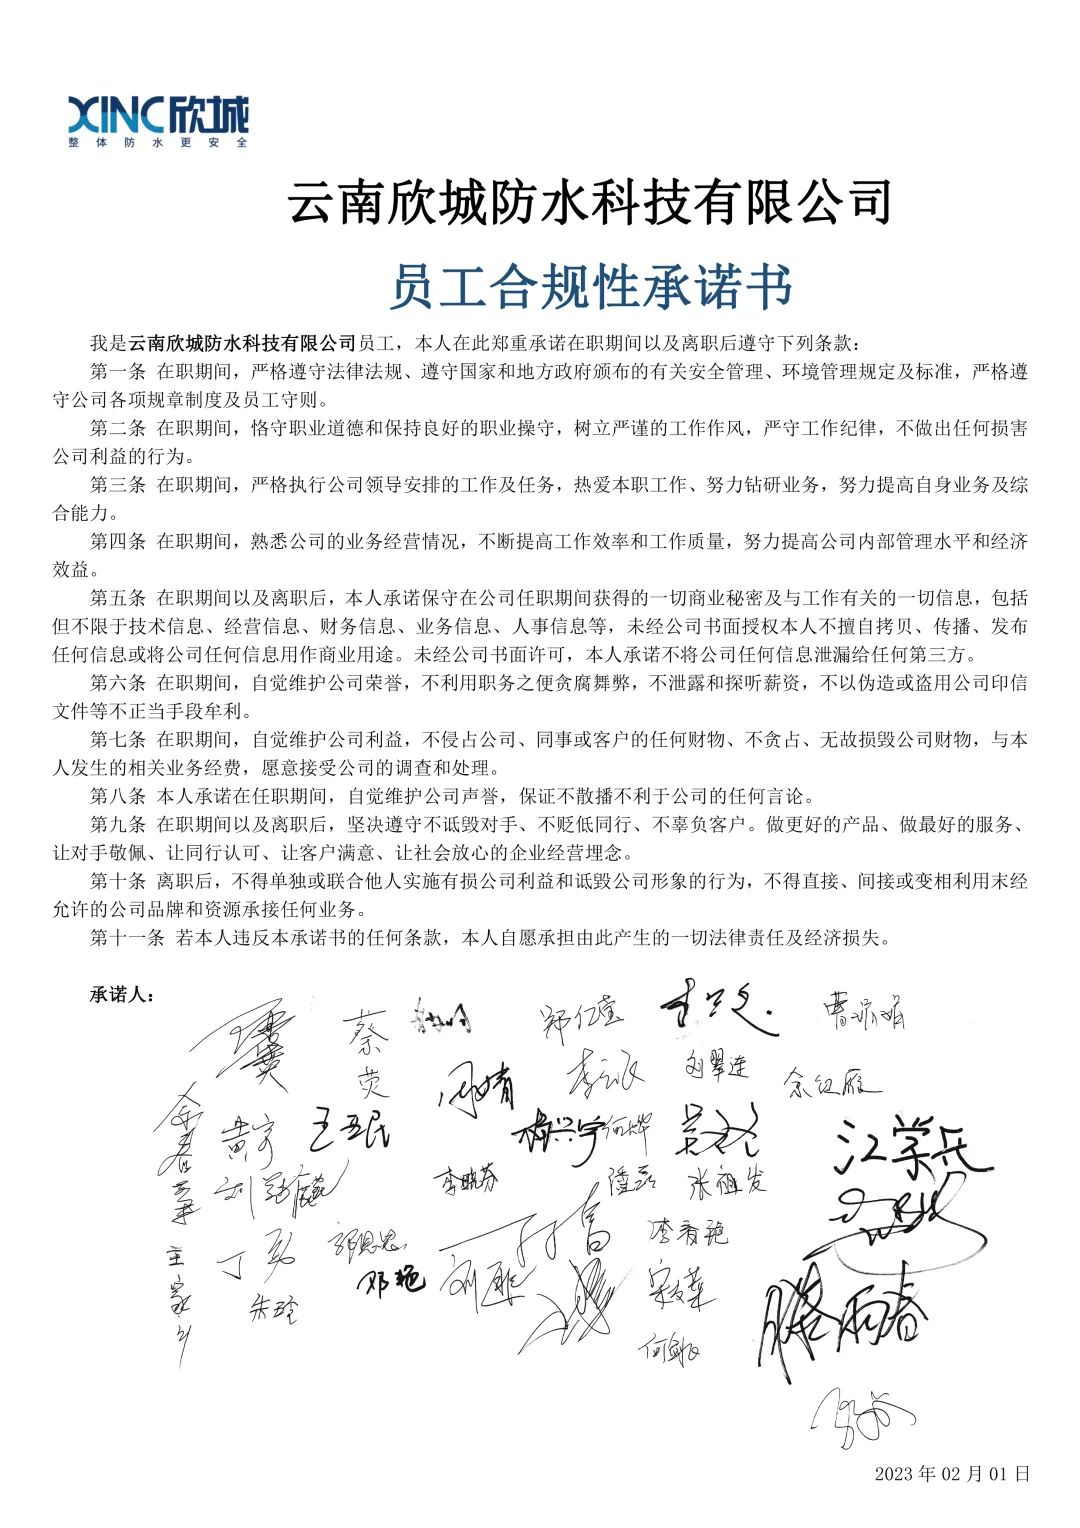 XINC欣城
整体防水更安全
云南欣城防水科技有限公司
员工合规性承诺书
我是云南欣城防水科技有限公司员工，本人在此郑重承诺在职期间以及离职后遵守下列条款：
第一条 在职期间，严格遵守法律法规、遵守国家和地方政府颁布的有关安全管理、环境管理规定及标准，严格遵
守公司各项规章制度及员工守则。
第二条 在职期间，恪守职业道德和保持良好的职业操守，树立严谨的工作作风，严守工作纪律，不做出任何损害
公司利益的行为。
第三条 在职期间，严格执行公司领导安排的工作及任务，热爱本职工作、努力钻研业务，努力提高自身业务及综
合能力。
第四条 在职期间，熟悉公司的业务经营情况，不断提高工作效率和工作质量，努力提高公司内部管理水平和经济
效益。
第五条 在职期间以及离职后，本人承诺保守在公司任职期间获得的一切商业秘密及与工作有关的一切信息，包括
但不限于技术信息、经营信息、财务信息、业务信息、人事信息等，未经公司书面授权本人不擅自拷贝、传播、发布
任何信息或将公司任何信息用作商业用途。未经公司书面许可，本人承诺不将公司任何信息泄漏给任何第三方。
第六条 在职期间，自觉维护公司荣誉，不利用职务之便贪腐舞弊，不泄露和探听薪资，不以伪造或盗用公司印信
文件等不正当手段牟利。
第七条 在职期间，自觉维护公司利益，不侵占公司、同事或客户的任何财物、不贪占、无故损毁公司财物，与本
人发生的相关业务经费，愿意接受公司的调查和处理。
第八条 本人承诺在任职期间，自觉维护公司声誉，保证不散播不利于公司的任何言论。
第九条 在职期间以及离职后，坚决遵守不诋毁对手、不贬低同行、不辜负客户。做更好的产品、做最好的服务、
让对手敬佩、让同行认可、让客户满意、让社会放心的企业经营埋念。
第十条 离职后，不得单独或联合他人实施有损公司利益和诋毁公司形象的行为，不得直接、间接或变相利用末经
允许的公司品牌和资源承接任何业务。
第十一条 若本人违反本承诺书的任何条款，本人自愿承担由此产生的一切法律责任及经济损失。
承诺人：
蔡荧
郑仁莹
周婧
刘翠连
余红雁
黄字
王丑民
杨兴宇
江学兵
李晓芬
潘磊
张祖发
丁勇
邓艳
李香艳
朱玲
滕雨春
2023 年 02 月 01 日